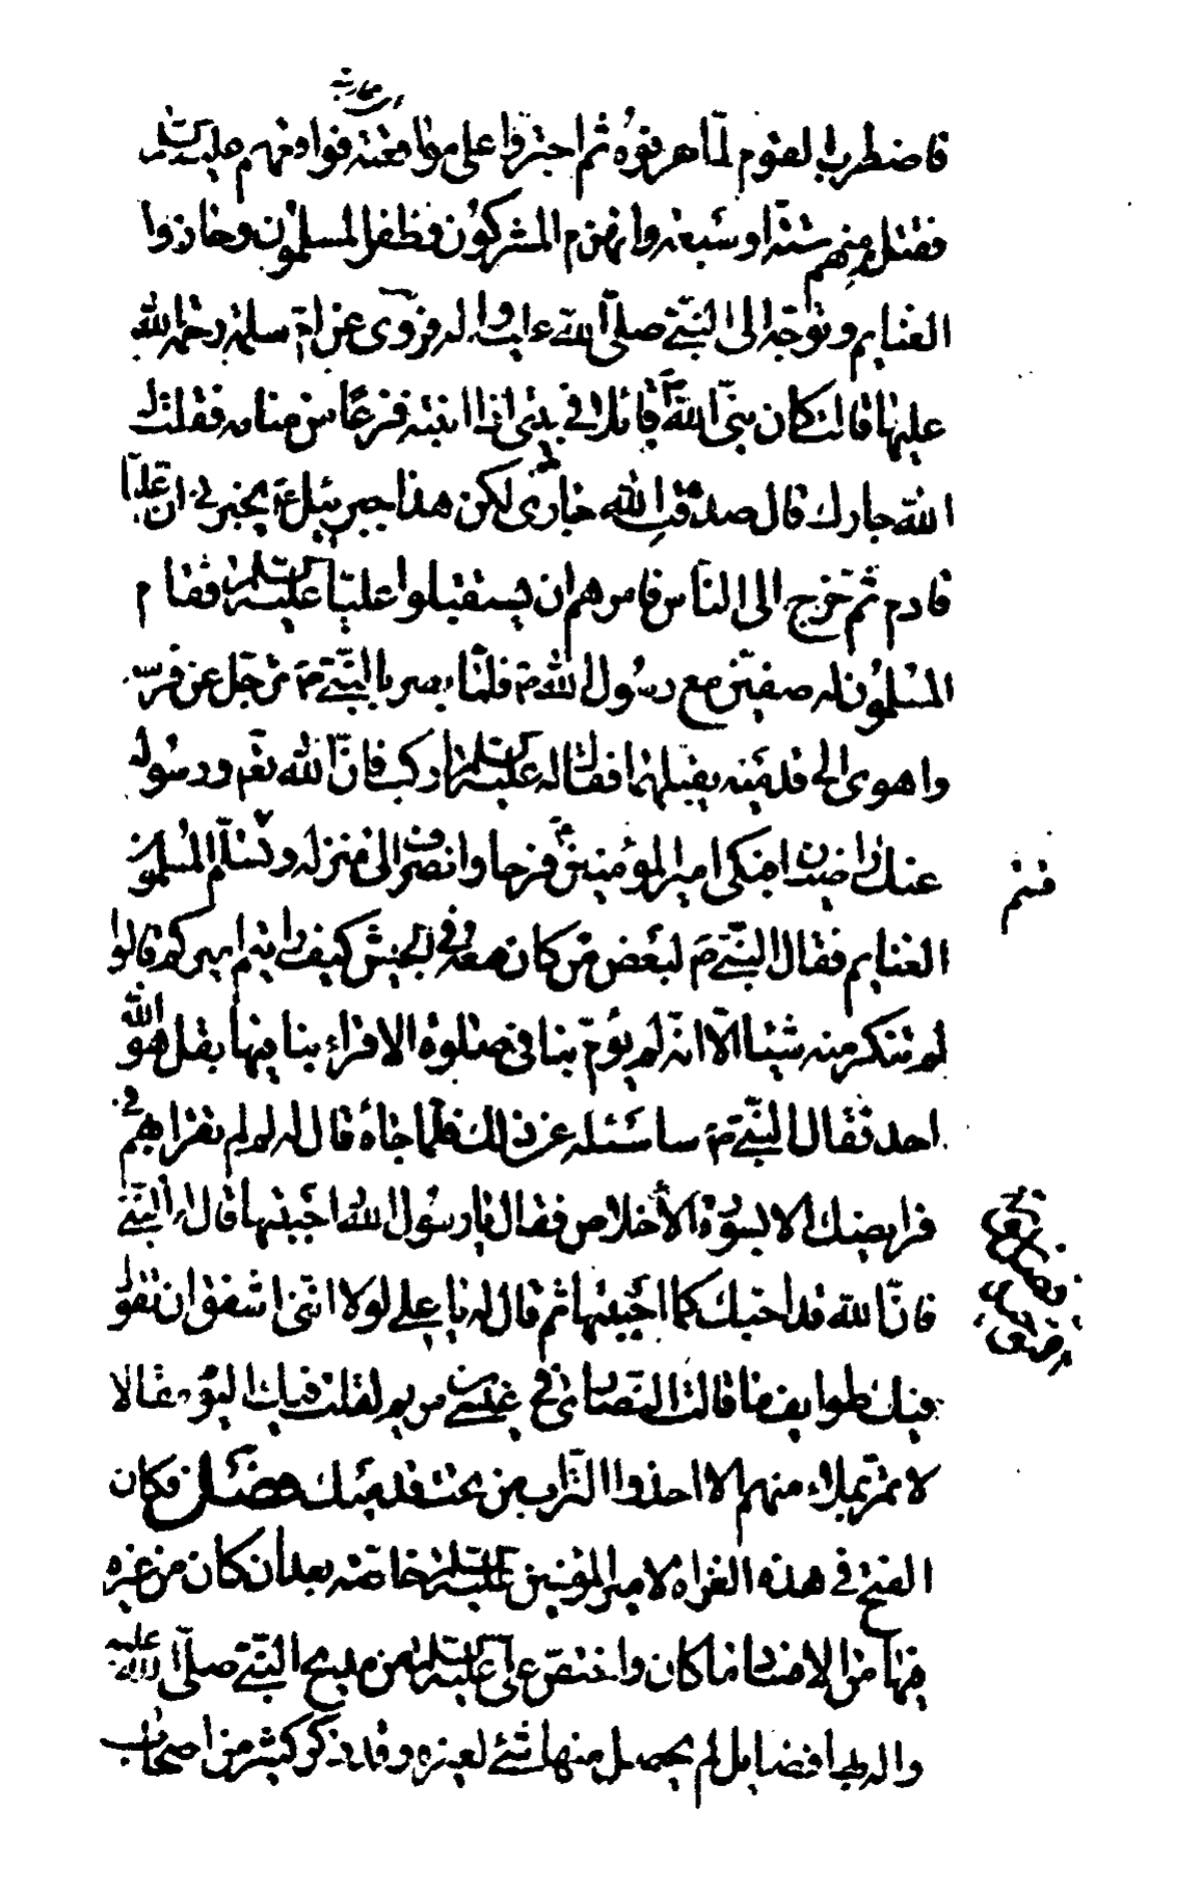 محاربته
فاضطرب القوم لما عرفوه ثم اجترؤا على مواقعته فواقعهم عليه السلام
فقتل منهم ستة او سبعة وانهزم المشركون وظفر المسلمون وحازوا
الغنايم وتوجه الى النبي صلى الله عليه واله فروى عن ام سلمة رحمة الله
عليها قالت كان نبي الله ص قائلا في بيتي اذا انتبه فزعا من منامه فقلت له
الله جارك قال صدقت الله جاري لكن هذا جبرئيل ع يخبرني ان عليا
قادم ثم خرج الى الناس فامرهم ان يستقبلوا عليا عليه السلام فقام
المسلمون له صفين مع رسول الله ص فلما بصر بالنبي ص ترجل عن فرسه
واهوى الى قدميه يقبلهما فقال له عليه السلام اركب فان الله تعم ورسوله
عنك راضيان فبكى امير المؤمنين ع فرحا وانصرف الى منزله وتسلم المسلمون
فتم
الغنايم فقال النبي ص لبعض من كان معه في الجيش كيف رايتم اميركم قالوا
لم ننكر منه شيئا الا انه لم يؤم بنا في صلوة الا قرأ بنا فيها بقل هو الله
احد فقال النبي ص ساسئله عن ذلك فلما جاءه قال له لم لم تقرأ بهم في
فرايضك الا بسورة الأخلاص فقال يا رسول الله احببتها قال له النبي
فان الله قد احبك كما احببتها ثم قال له يا علي لولا انني اشفق ان تقول
فيك طوايف ما قالت النصارى في عيسى بن مريم لقلت فيك اليوم مقالا
لا تمر بملاء منهم الا اخذوا التراب من تحت قدميك فصل فكان
الفتح في هذه الغزاة لامير المؤمنين عليه السلام خاصة بعد أن كان من غيره
فيها من الافساد ما كان واختص علي عليه السلام من مديح النبي صلى الله عليه
واله بها فضايل لم يحصل منها شئ لغيره وقد ذكر كثير من اصحاب